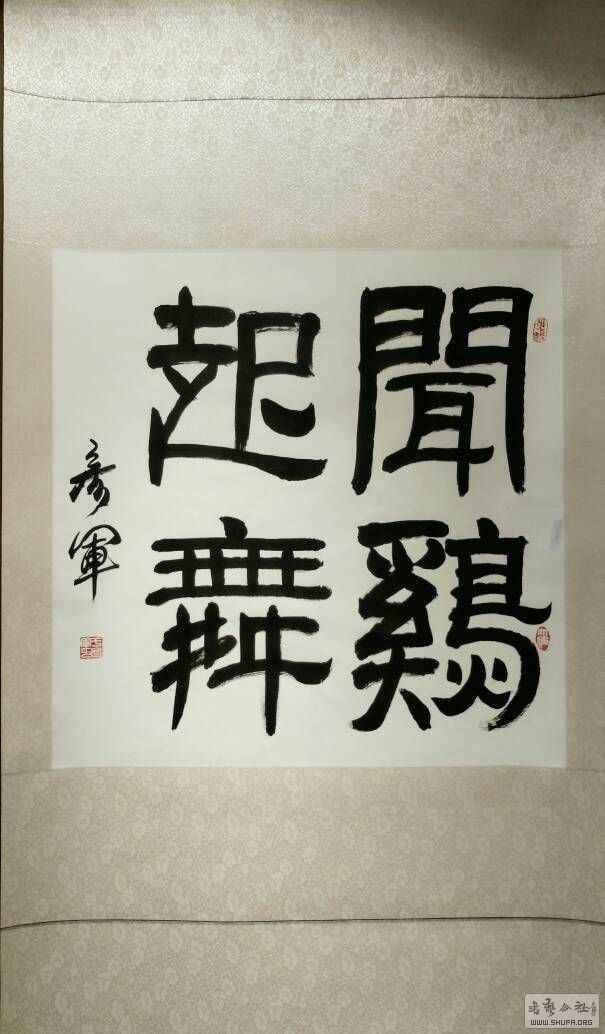 聞鷄
起舞
彦軍
书艺公社
WWW.SHUFA.ORG